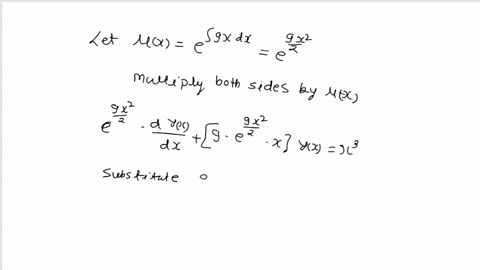 Let μ(x) = e^{∫9x dx} = e^{9x²/2}
multiply both sides by μ(x)
e^{9x²/2} · d y(x)/dx + [9 · e^{9x²/2} · x] y(x) = x³
Substitute 9